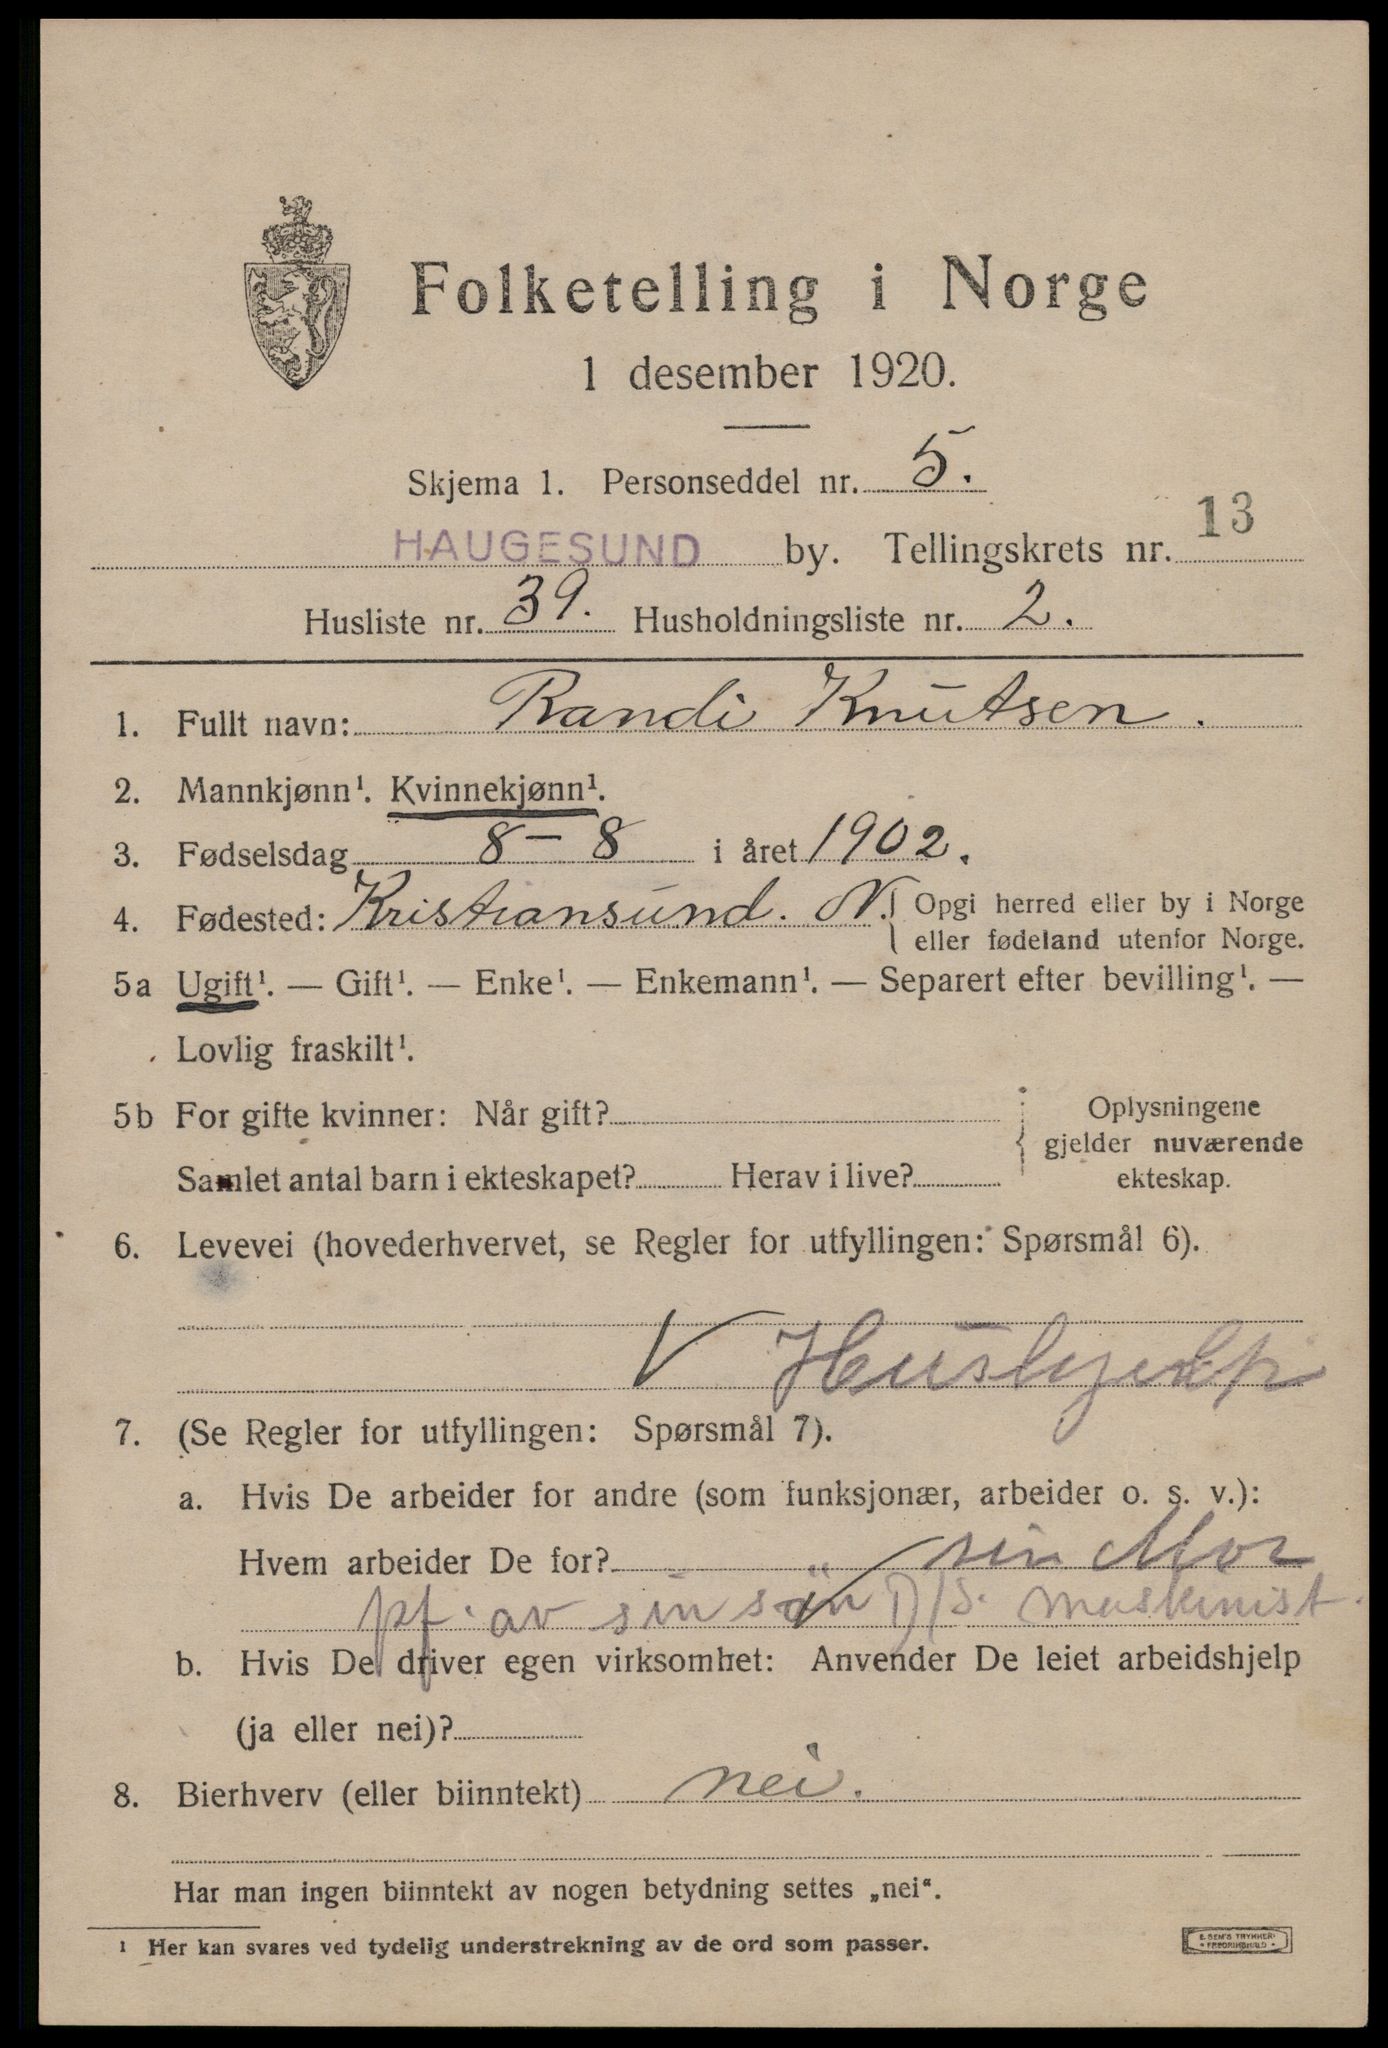 Folketelling i Norge
1 desember 1920.
Skjema 1. Personseddel nr. 5.
HAUGESUND by. Tellingskrets nr. 13
Husliste nr. 39. Husholdningsliste nr. 2.
1. Fullt navn: Randi Knutsen.
2. Mannkjønn¹. Kvinnekjønn¹.
3. Fødselsdag 8 – 8 i året 1902.
4. Fødested: Kristiansund. N. Opgi herred eller by i Norge
eller fødeland utenfor Norge.
5a Ugift¹. — Gift¹. — Enke¹. — Enkemann¹. — Separert efter bevilling¹. —
Lovlig fraskilt¹.
5b For gifte kvinner: Når gift? Oplysningene
gjelder nuværende
Samlet antal barn i ekteskapet? Herav i live? ekteskap.
6. Levevei (hovederhvervet, se Regler for utfyllingen: Spørsmål 6).
Hushjelp
7. (Se Regler for utfyllingen: Spørsmål 7).
a. Hvis De arbeider for andre (som funksjonær, arbeider o. s. v.):
Hvem arbeider De for? sin Mor
pf. av sin sön D/S. maskinist.
b. Hvis De driver egen virksomhet: Anvender De leiet arbeidshjelp
(ja eller nei)?
8. Bierhverv (eller biinntekt) nei.
Har man ingen biinntekt av nogen betydning settes „nei“.
¹ Her kan svares ved tydelig understrekning av de ord som passer.
E. SEM'S TRYKKERI
FREDRIKSHALD